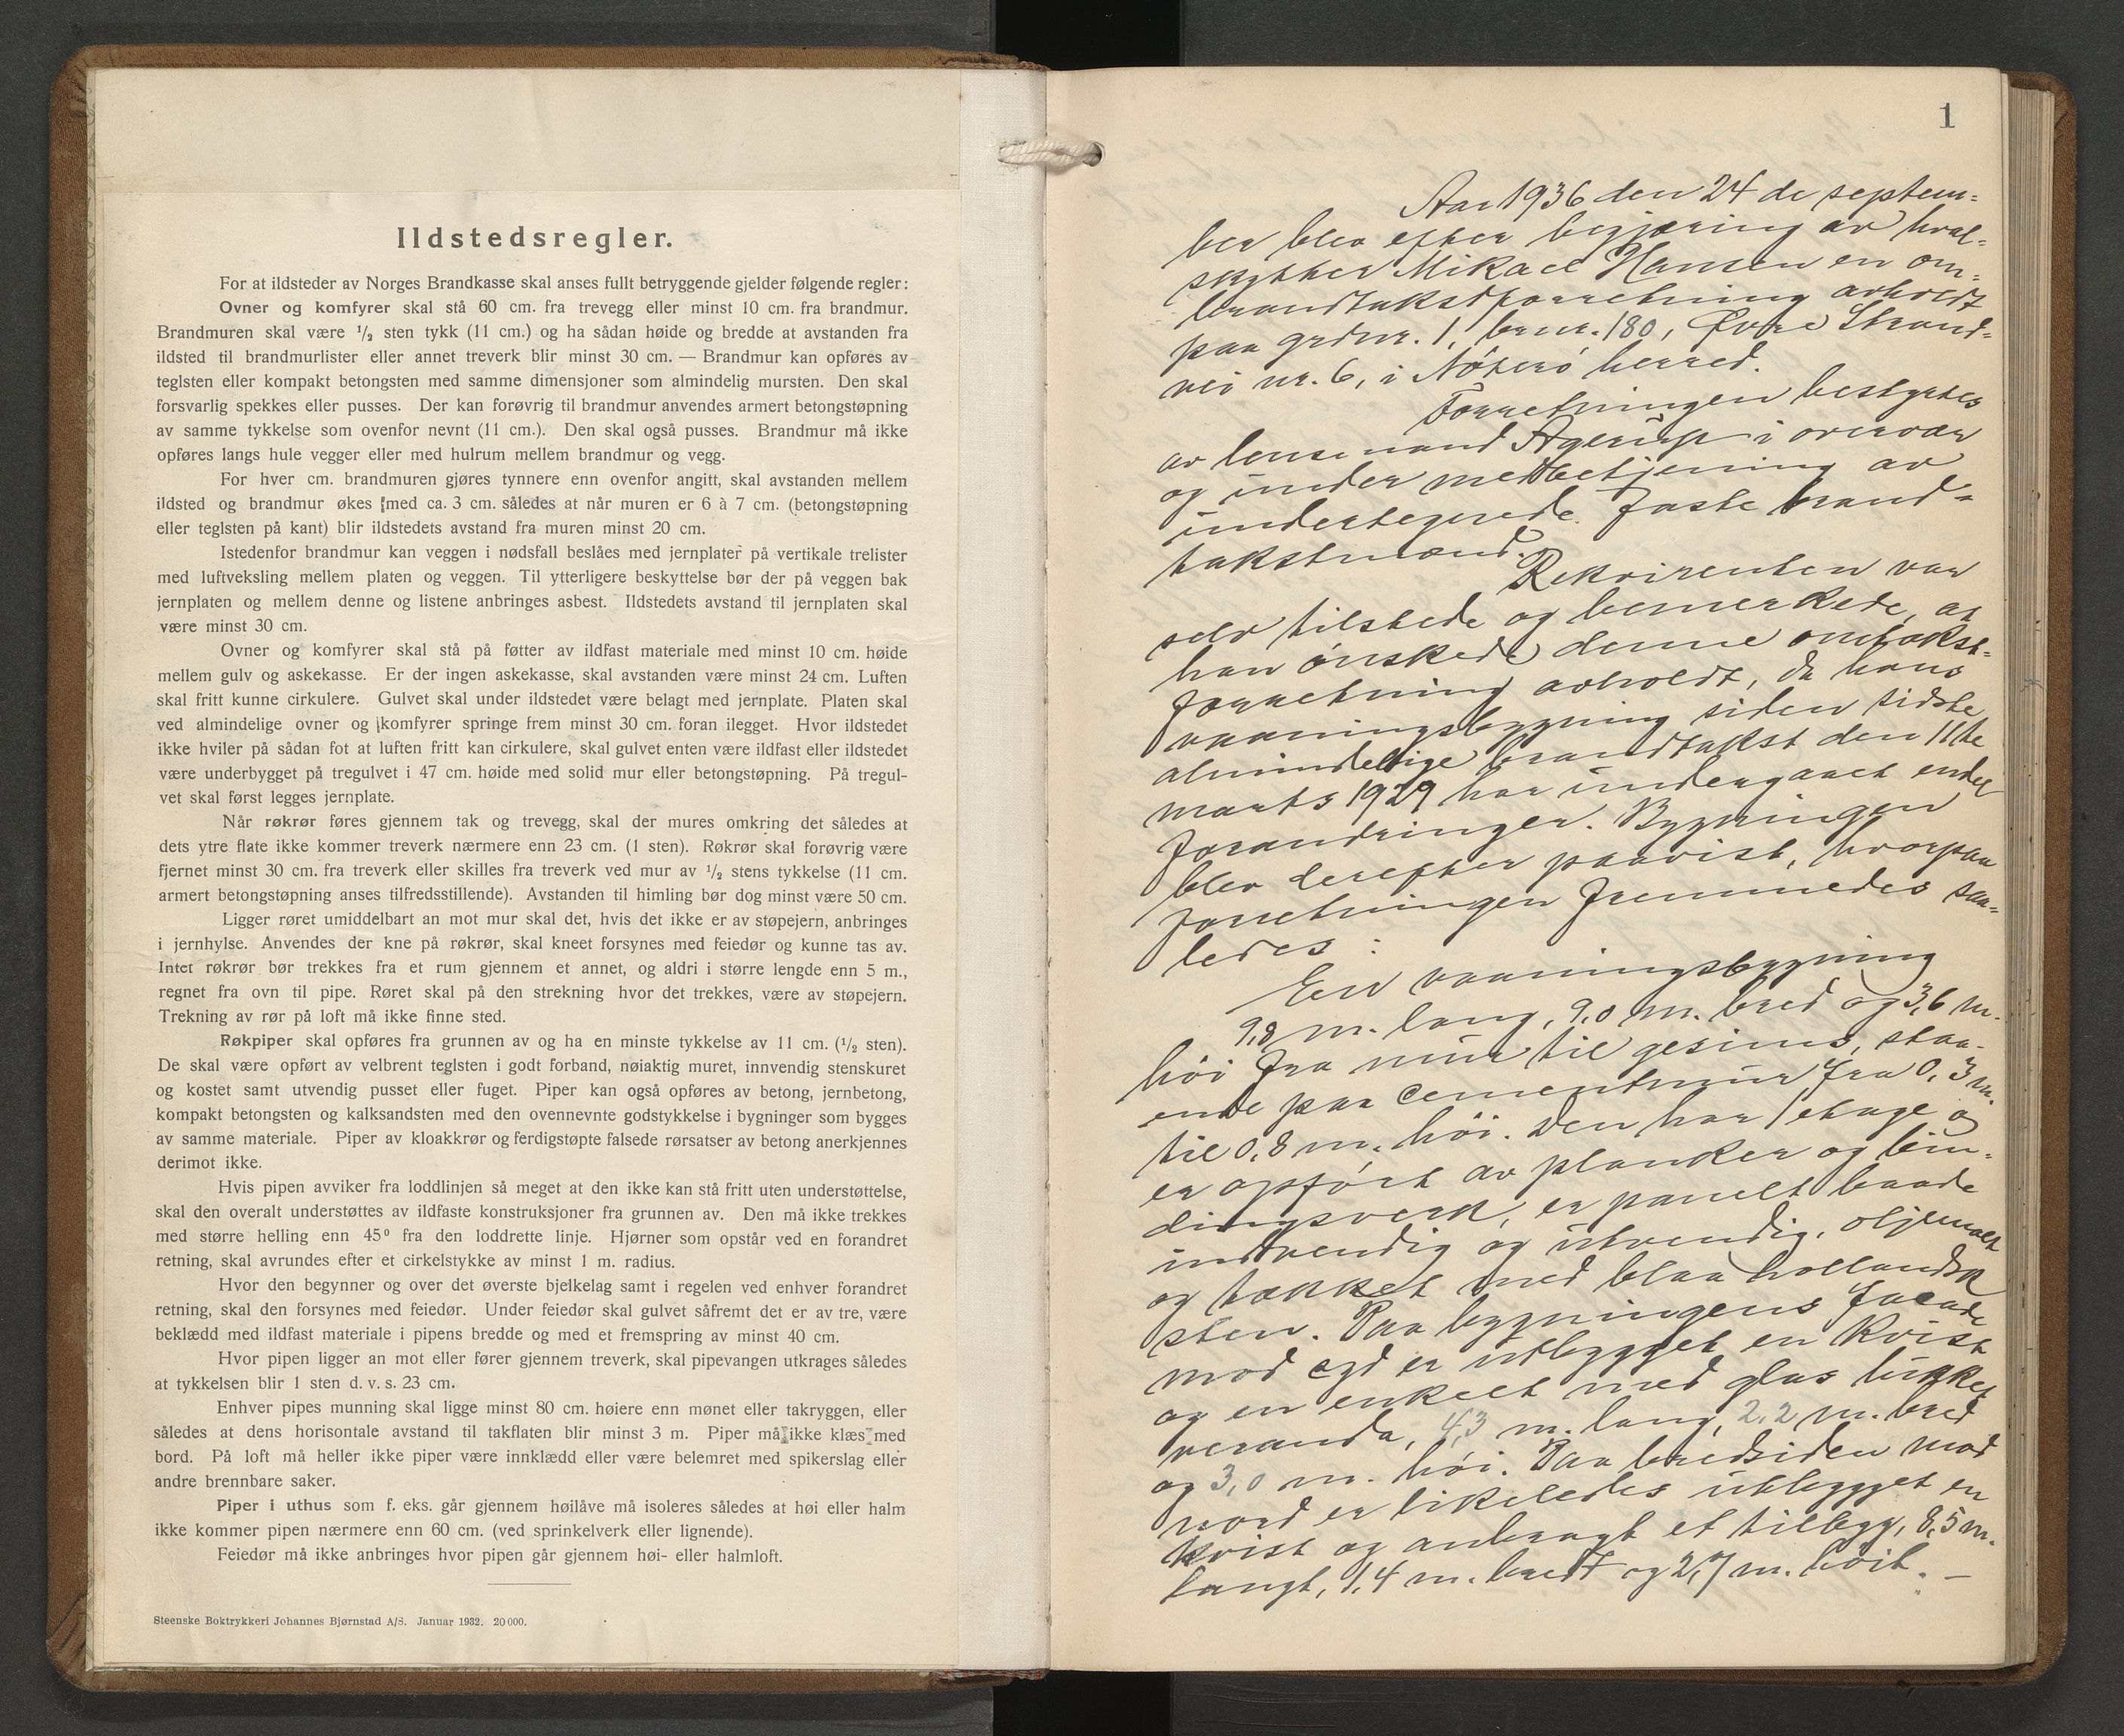 Ildstedsregler.
For at ildsteder av Norges Brandkasse skal anses fullt betryggende gjelder følgende regler:
Ovner og komfyrer skal stå 60 cm. fra trevegg eller minst 10 cm. fra brandmur.
Brandmuren skal være 1/2 sten tykk (11 cm.) og ha sådan høide og bredde at avstanden fra
ildsted til brandmurlister eller annet treverk blir minst 30 cm. — Brandmur kan opføres av
teglsten eller kompakt betongsten med samme dimensjoner som almindelig mursten. Den skal
forsvarlig spekkes eller pusses. Der kan forøvrig til brandmur anvendes armert betongstøpning
av samme tykkelse som ovenfor nevnt (11 cm.). Den skal også pusses. Brandmur må ikke
opføres langs hule vegger eller med hulrum mellem brandmur og vegg.
For hver cm. brandmuren gjøres tynnere enn ovenfor angitt, skal avstanden mellem
ildsted og brandmur økes med ca. 3 cm. således at når muren er 6 à 7 cm. (betongstøpning
eller teglsten på kant) blir ildstedets avstand fra muren minst 20 cm.
Istedenfor brandmur kan veggen i nødsfall beslåes med jernplater på vertikale trelister
med luftveksling mellem platen og veggen. Til ytterligere beskyttelse bør der på veggen bak
jernplaten og mellem denne og listene anbringes asbest. Ildstedets avstand til jernplaten skal
være minst 30 cm.
Ovner og komfyrer skal stå på føtter av ildfast materiale med minst 10 cm. høide
mellem gulv og askekasse. Er der ingen askekasse, skal avstanden være minst 24 cm. Luften
skal fritt kunne cirkulere. Gulvet skal under ildstedet være belagt med jernplate. Platen skal
ved almindelige ovner og komfyrer springe frem minst 30 cm. foran ilegget. Hvor ildstedet
ikke hviler på sådan fot at luften fritt kan cirkulere, skal gulvet enten være ildfast eller ildstedet
være underbygget på tregulvet i 47 cm. høide med solid mur eller betongstøpning. På tregul-
vet skal først legges jernplate.
Når røkrør føres gjennem tak og trevegg, skal der mures omkring det således at
dets ytre flate ikke kommer treverk nærmere enn 23 cm. (1 sten). Røkrør skal forøvrig være
fjernet minst 30 cm. fra treverk eller skilles fra treverk ved mur av 1/2 stens tykkelse (11 cm.
armert betongstøpning anses tilfredsstillende). Avstanden til himling bør dog minst være 50 cm.
Ligger røret umiddelbart an mot mur skal det, hvis det ikke er av støpejern, anbringes
i jernhylse. Anvendes der kne på røkrør, skal kneet forsynes med feiedør og kunne tas av.
Intet røkrør bør trekkes fra et rum gjennem et annet, og aldri i større lengde enn 5 m.,
regnet fra ovn til pipe. Røret skal på den strekning hvor det trekkes, være av støpejern.
Trekning av rør på loft må ikke finne sted.
Røkpiper skal opføres fra grunnen av og ha en minste tykkelse av 11 cm. (1/2 sten).
De skal være opført av velbrent teglsten i godt forband, nøiaktig muret, innvendig stenskuret
og kostet samt utvendig pusset eller fuget. Piper kan også opføres av betong, jernbetong,
kompakt betongsten og kalksandsten med den ovennevnte godstykkelse i bygninger som bygges
av samme materiale. Piper av kloakkrør og ferdigstøpte falsede rørsatser av betong anerkjennes
derimot ikke.
Hvis pipen avviker fra loddlinjen så meget at den ikke kan stå fritt uten understøttelse,
skal den overalt understøttes av ildfaste konstruksjoner fra grunnen av. Den må ikke trekkes
med større helling enn 45° fra den loddrette linje. Hjørner som opstår ved en forandret
retning, skal avrundes efter et cirkelstykke av minst 1 m. radius.
Hvor den begynner og over det øverste bjelkelag samt i regelen ved enhver forandret
retning, skal den forsynes med feiedør. Under feiedør skal gulvet såfremt det er av tre, være
beklædd med ildfast materiale i pipens bredde og med et fremspring av minst 40 cm.
Hvor pipen ligger an mot eller fører gjennem treverk, skal pipevangen utkrages således
at tykkelsen blir 1 sten d. v. s. 23 cm.
Enhver pipes munning skal ligge minst 80 cm. høiere enn mønet eller takryggen, eller
således at dens horisontale avstand til takflaten blir minst 3 m. Piper må ikke klæs med
bord. På loft må heller ikke piper være innklædd eller være belemret med spikerslag eller
andre brennbare saker.
Piper i uthus som f. eks. går gjennem høilåve må isoleres således at høi eller halm
ikke kommer pipen nærmere enn 60 cm. (ved sprinkelverk eller lignende).
Feiedør må ikke anbringes hvor pipen går gjennem høi- eller halmloft.
Steenske Boktrykkeri Johannes Bjørnstad A/S. Januar 1932. 20 000.
1
Aar 1936 den 24 de septem-
ber blev efter begjæring av hval-
skytter Mikael Hansen en om-
brandtakstforretning avholdt
paa grdnr. 1, brnr. 180, Øvre Strand-
vei nr. 6, i Nøterø herred.
Forretningen bestyrtes
av lensmand Agerup i overvær
og under medbetjening av
undertegnede faste brand-
takstmænd.
Rekvirenten var
selv tilstede og bemerkede, at
han ønskede denne omtakst-
forretning avholdt, da hans
vaaningsbygning siden sidste
almindelige brandtakst den 11te
marts 1929 har undergaaet endel
forandringer. Bygningen
blev derefter paavist, hvorpaa
forretningen fremmedes saa-
ledes:
En vaaningsbygning
9,8 m. lang, 9,0 m. bred og 3,6 m.
høi fra mur til gesims, staa-
ende paa cementmur fra 0,3 m.
til 0,8 m. høi. Den har 1 etage og
er opført av planker og bin-
dingsverk, er panelt baade
indvendig og utvendig, oljemalt
og tækket med blaa hollandsk
sten. Paa bygningens facade
mod syd er utbygget en kvist
og en enkelt med glas lukket
veranda, 4,3 m. lang, 2,2 m. bred
og 3,0 m. høi. Paa bredsiden mod
nord er likeledes utbygget en
kvist og anbragt et tilbygg, 8,5 m.
langt, 1,4 m. bredt og 2,7 m. høit. —